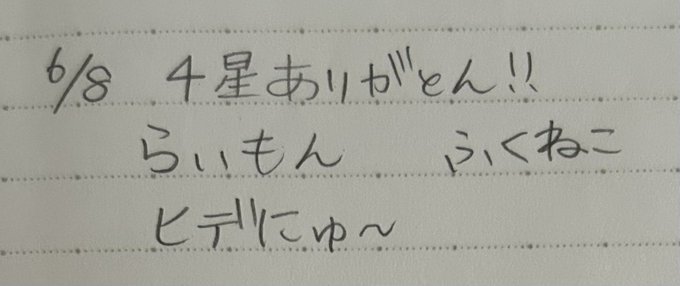 6/8 4星ありがとん!!
らいもん ふくねこ
ヒデにゅ〜